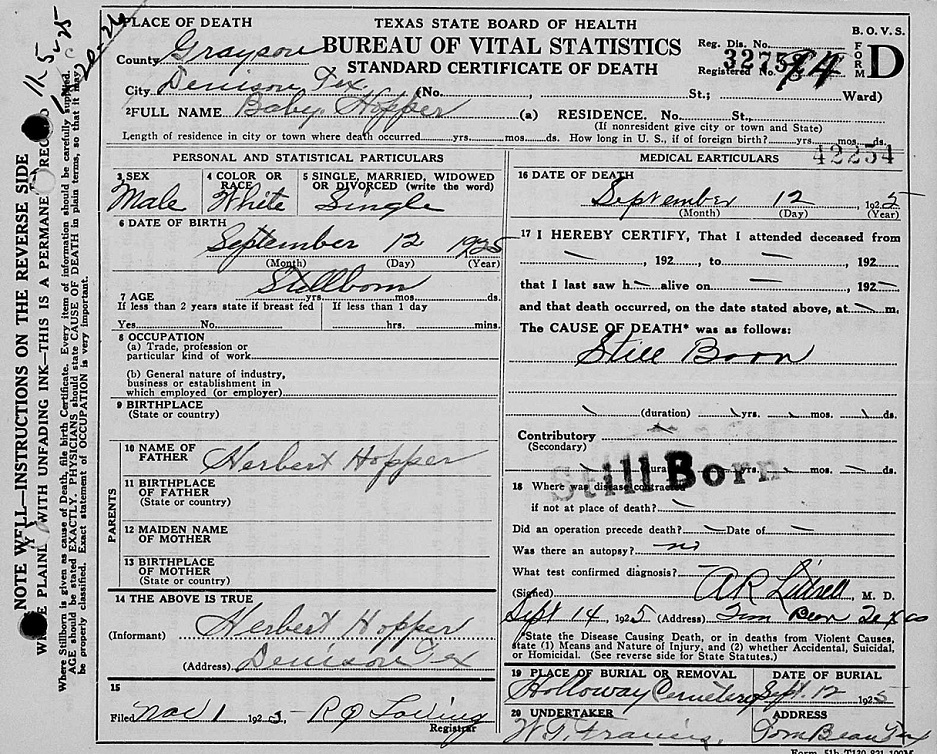 PLACE OF DEATH
TEXAS STATE BOARD OF HEALTH
BUREAU OF VITAL STATISTICS
STANDARD CERTIFICATE OF DEATH
B. O. V. S.
FORM D
Reg. Dis. No.
Registered No. 74
County Grayson
City Denison Tex (No. , St.; Ward)
2 FULL NAME Baby Hopper (a) RESIDENCE. No. St.,
(If nonresident give city or town and State)
Length of residence in city or town where death occurred yrs. mos. ds. How long in U. S., if of foreign birth? yrs. mos. ds.
42254
PERSONAL AND STATISTICAL PARTICULARS
3 SEX
Male
4 COLOR OR RACE
White
5 SINGLE, MARRIED, WIDOWED OR DIVORCED (write the word)
Single
6 DATE OF BIRTH
September 12 1925
(Month) (Day) (Year)
Stillborn
7 AGE yrs. mos. ds.
If less than 2 years state if breast fed
If less than 1 day
Yes No. hrs. mins.
8 OCCUPATION
(a) Trade, profession or
particular kind of work
(b) General nature of industry,
business or establishment in
which employed (or employer)
9 BIRTHPLACE
(State or country)
PARENTS
10 NAME OF FATHER Herbert Hopper
11 BIRTHPLACE OF FATHER
(State or country)
12 MAIDEN NAME OF MOTHER
13 BIRTHPLACE OF MOTHER
(State or country)
14 THE ABOVE IS TRUE
(Informant) Herbert Hopper
(Address) Denison Tex
15
Filed Nov 1 1925
Registrar
MEDICAL EARTICULARS
16 DATE OF DEATH
September 12 1925
(Month) (Day) (Year)
17 I HEREBY CERTIFY, That I attended deceased from
, 192 to , 192
that I last saw h alive on , 192
and that death occurred, on the date stated above, at m.
The CAUSE OF DEATH* was as follows:
Still Born
(duration) yrs. mos. ds.
Contributory
(Secondary)
Still Born
yrs. mos. ds.
18 Where was disease contracted
if not at place of death?
Did an operation precede death? Date of
Was there an autopsy? no
What test confirmed diagnosis?
(Signed) , M. D.
Sept 14, 1925 (Address) Tom Bean Texas
*State the Disease Causing Death, or in deaths from Violent Causes,
state (1) Means and Nature of Injury, and (2) whether Accidental, Suicidal,
or Homicidal. (See reverse side for State Statutes.)
19 PLACE OF BURIAL OR REMOVAL
Holloway Cemetery
DATE OF BURIAL
Sept. 12 1925
20 UNDERTAKER
W.T. Francis.
ADDRESS
Tom Bean Tex
NOTE WELL—INSTRUCTIONS ON THE REVERSE SIDE
PLAINLY WITH UNFADING INK—THIS IS A PERMANENT
Where Stillborn is given as cause of Death, file birth Certificate. Every item of information should be carefully supplied.
AGE should be stated EXACTLY. PHYSICIANS should state CAUSE OF DEATH in plain terms, so that it may
be properly classified. Exact statement of OCCUPATION is very important.